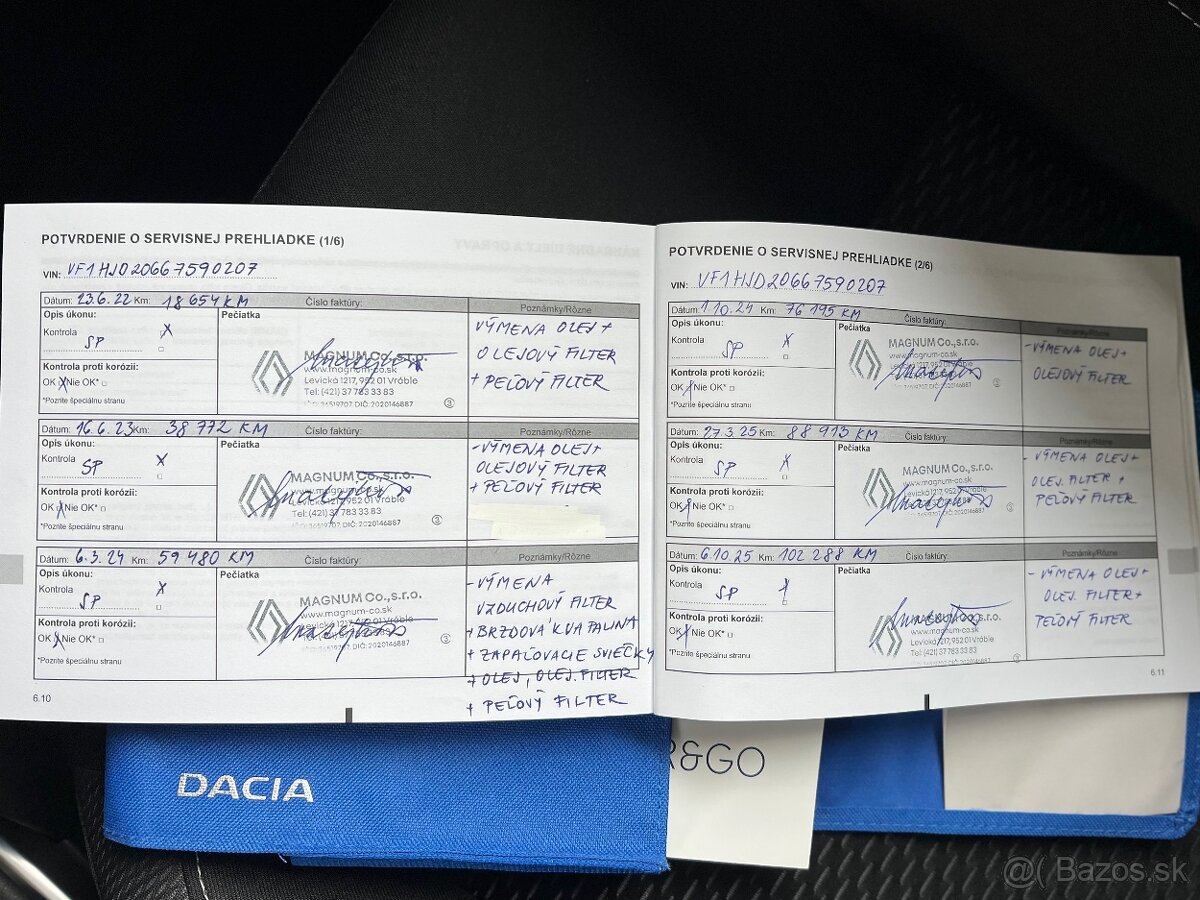 POTVRDENIE O SERVISNEJ PREHLIADKE (1/6)
VIN: VF1HJD20667590207
Dátum: 23.6.22 Km: 18 654 KM Číslo faktúry: Poznámky/Rôzne
Opis úkonu: Pečiatka
Kontrola X
SP
Kontrola proti korózii:
OK X Nie OK*
*Pozrite špeciálnu stranu
MAGNUM Co.,s.r.o.
www.magnum-co.sk
Levická 1217, 952 01 Vráble
Tel: (421) 37 783 33 83
IČO: 36519707 DIČ: 2020146887
3
VÝMENA OLEJ +
OLEJOVÝ FILTER
+ PEĽOVÝ FILTER
Dátum: 16.6.23 Km: 38 772 KM Číslo faktúry: Poznámky/Rôzne
Opis úkonu: Pečiatka
Kontrola X
SP
Kontrola proti korózii:
OK X Nie OK*
*Pozrite špeciálnu stranu
MAGNUM Co.,s.r.o.
www.magnum-co.sk
Levická 1217, 952 01 Vráble
Tel: (421) 37 783 33 83
IČO: 36519707 DIČ: 2020146887
3
- VÝMENA OLEJ +
OLEJOVÝ FILTER
+ PEĽOVÝ FILTER
Dátum: 6.3.24 Km: 59 480 KM Číslo faktúry: Poznámky/Rôzne
Opis úkonu: Pečiatka
Kontrola X
SP
Kontrola proti korózii:
OK X Nie OK*
*Pozrite špeciálnu stranu
MAGNUM Co.,s.r.o.
www.magnum-co.sk
Levická 1217, 952 01 Vráble
Tel: (421) 37 783 33 83
IČO: 36519707 DIČ: 2020146887
3
- VÝMENA
VZDUCHOVÝ FILTER
+ BRZDOVÁ KVAPALINA
+ ZAPAĽOVACIE SVIEČKY
+ OLEJ, OLEJ. FILTER
+ PEĽOVÝ FILTER
6.10
POTVRDENIE O SERVISNEJ PREHLIADKE (2/6)
VIN: VF1HJD20667590207
Dátum: 1.10.24 Km: 76 195 KM Číslo faktúry: Poznámky/Rôzne
Opis úkonu: Pečiatka
Kontrola X
SP
Kontrola proti korózii:
OK X Nie OK*
*Pozrite špeciálnu stranu
MAGNUM Co.,s.r.o.
www.magnum-co.sk
Levická 1217, 952 01 Vráble
Tel: (421) 37 783 33 83
IČO: 36519707 DIČ: 2020146887
3
- VÝMENA OLEJ +
OLEJOVÝ FILTER
Dátum: 27.3.25 Km: 88 913 KM Číslo faktúry: Poznámky/Rôzne
Opis úkonu: Pečiatka
Kontrola X
SP
Kontrola proti korózii:
OK X Nie OK*
*Pozrite špeciálnu stranu
MAGNUM Co.,s.r.o.
www.magnum-co.sk
Levická 1217, 952 01 Vráble
Tel: (421) 37 783 33 83
IČO: 36519707 DIČ: 2020146887
3
- VÝMENA OLEJ +
OLEJ. FILTER +
PEĽOVÝ FILTER
Dátum: 6.10.25 Km: 102 288 KM Číslo faktúry: Poznámky/Rôzne
Opis úkonu: Pečiatka
Kontrola X
SP
Kontrola proti korózii:
OK X Nie OK*
*Pozrite špeciálnu stranu
MAGNUM Co.,s.r.o.
www.magnum-co.sk
Levická 1217, 952 01 Vráble
Tel: (421) 37 783 33 83
IČO: 36519707 DIČ: 2020146887
3
- VÝMENA OLEJ +
OLEJ. FILTER +
PEĽOVÝ FILTER
6.11
DACIA
R&GO
@( Bazos.sk